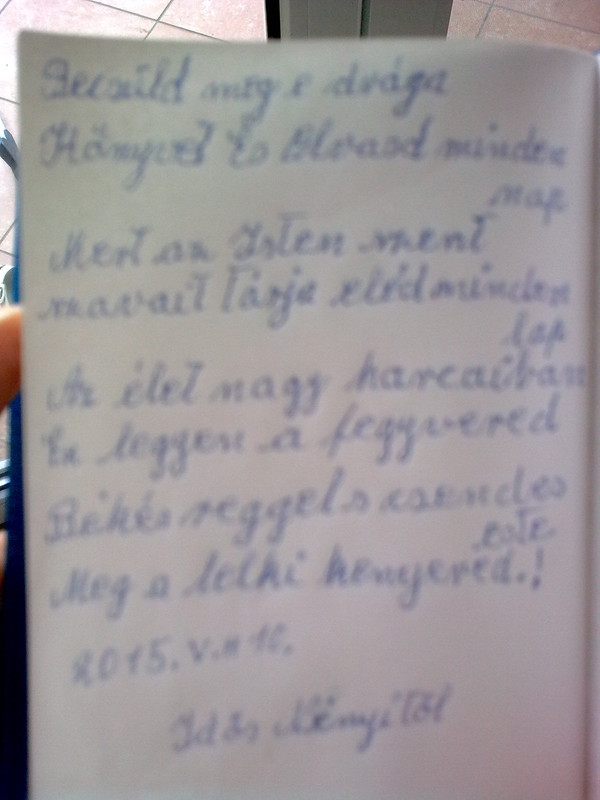 Becsüld meg e drága
Könyvet És Olvasd minden
nap
Mert az Isten szent
szavait Tárja eléd minden
lap
Az élet nagy harcaiban
Ez legyen a fegyvered
Békés reggel s csendes
este
Meg a lelki kenyered.!
2015. V. 10.
Idős Nényitől